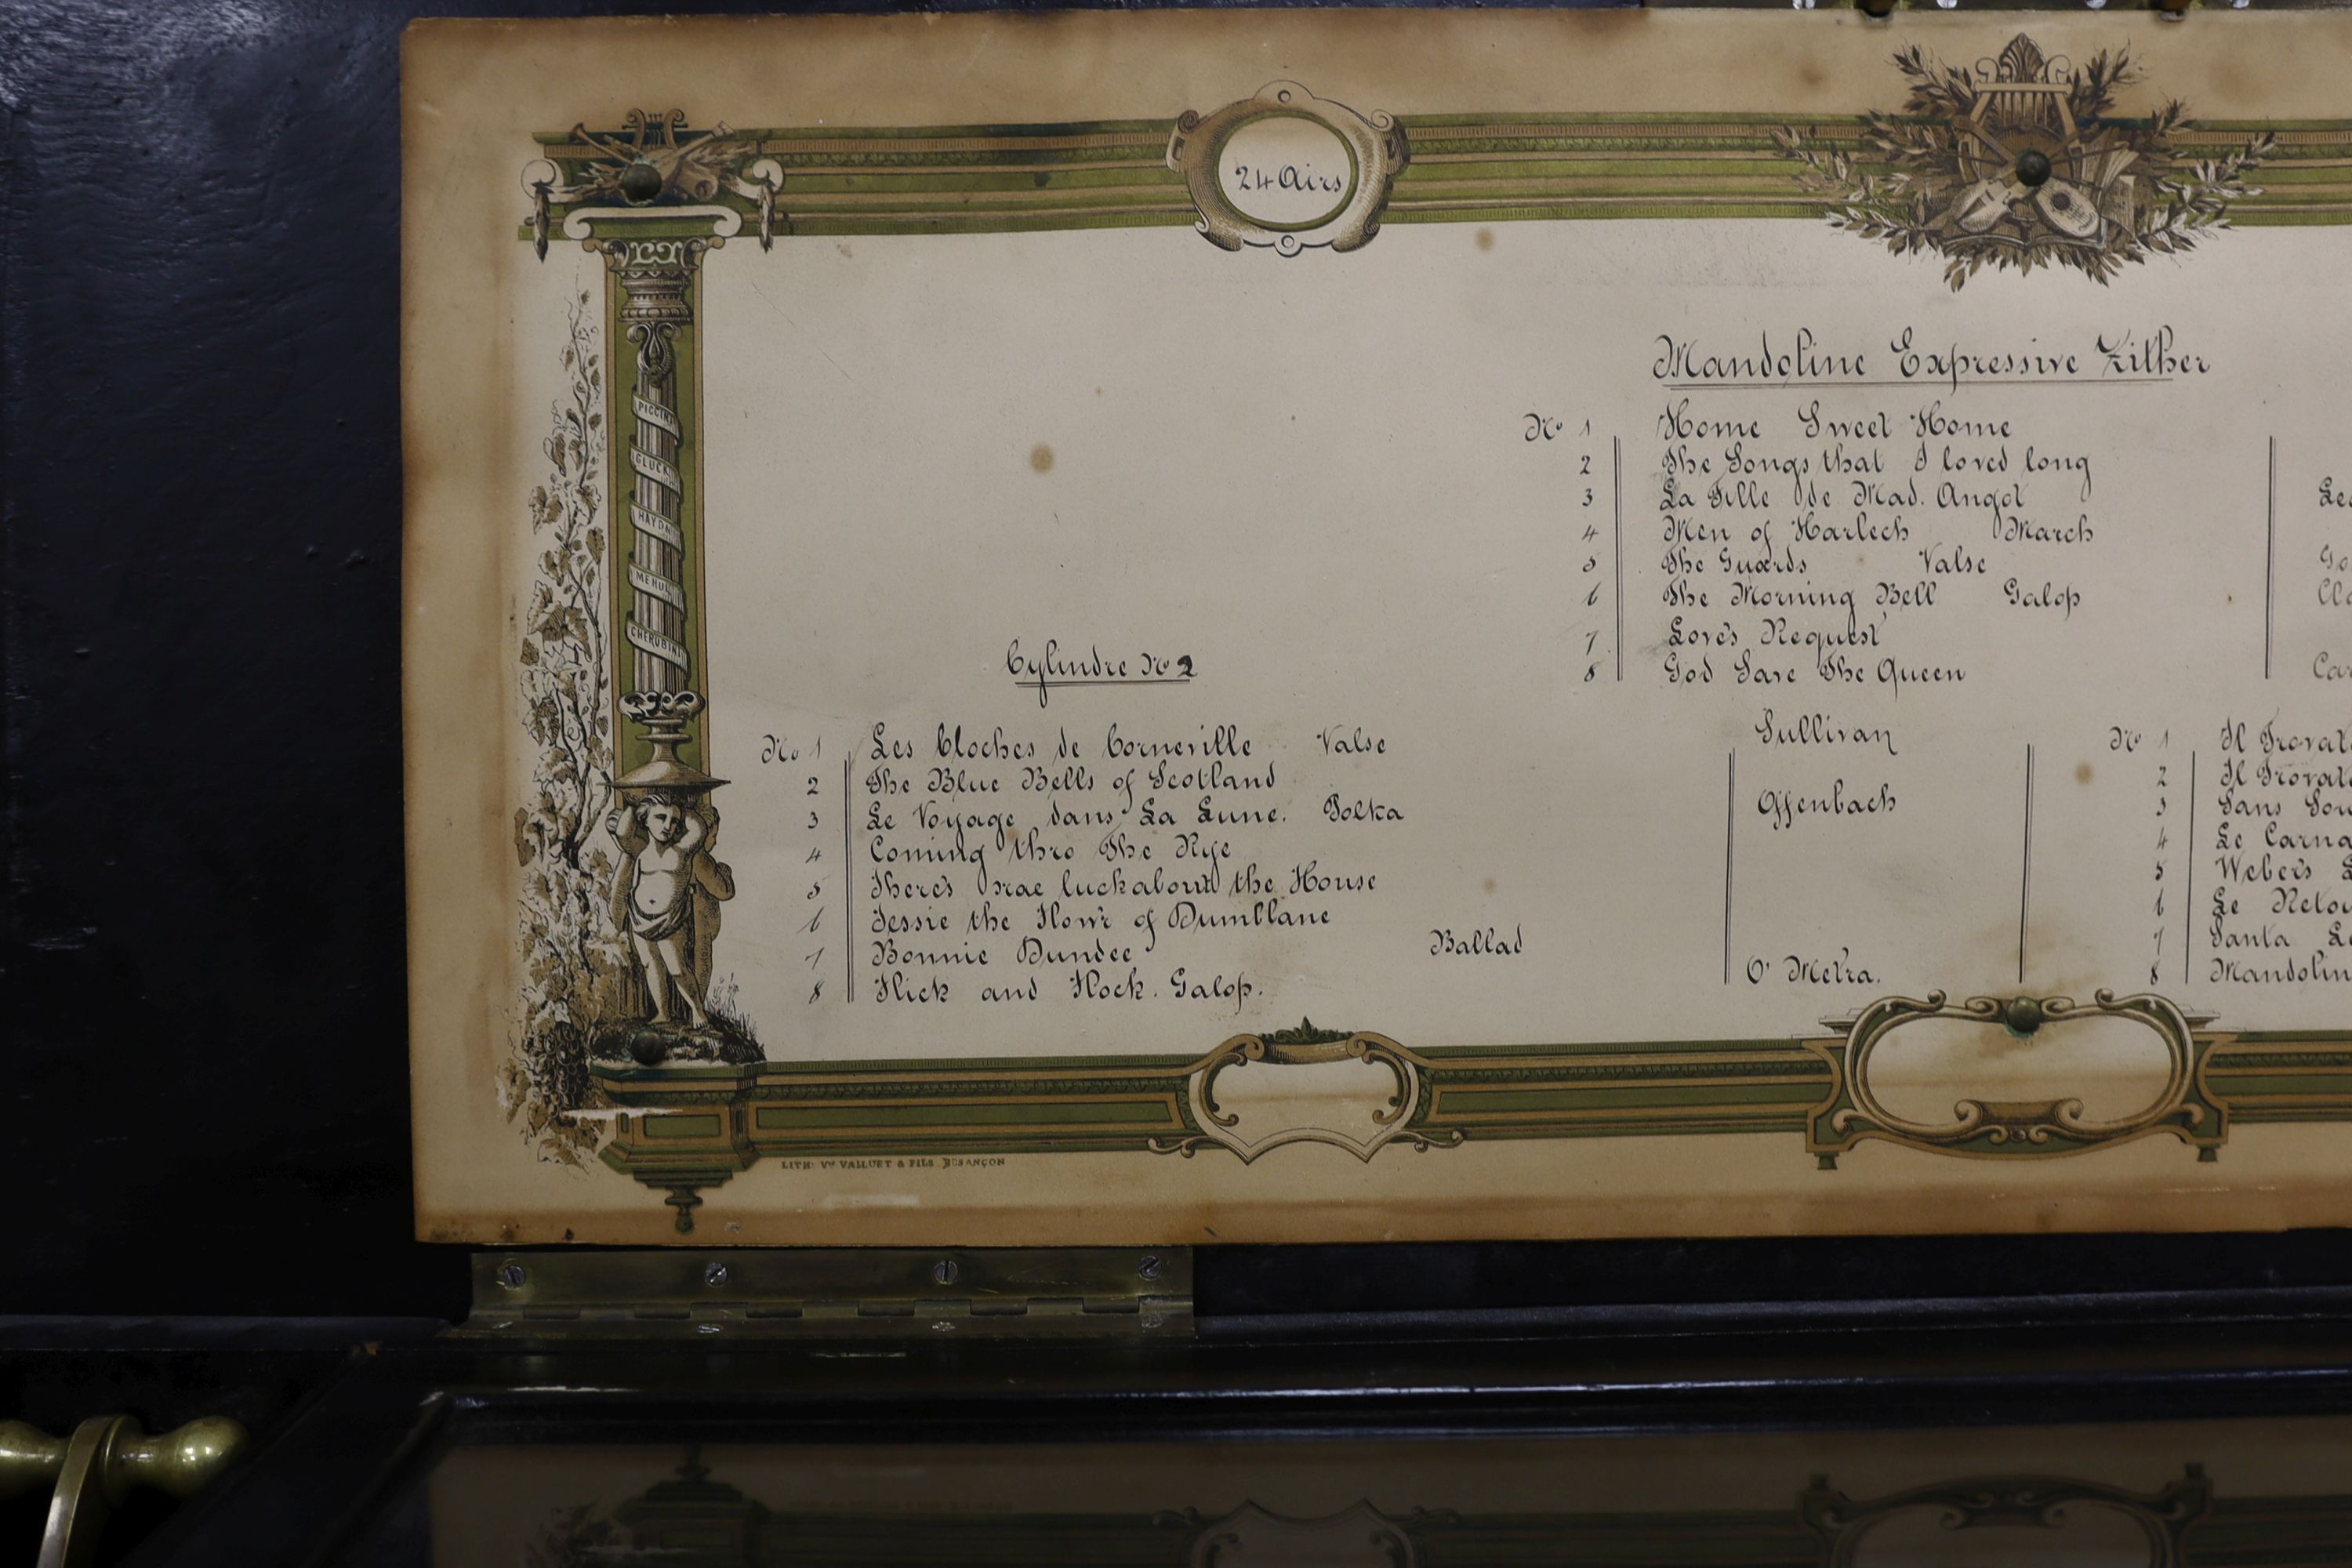 24 Airs
PICCINI
GLUCK
HAYDN
MEHUL
CHERUBINI
Mandoline Expressive Zither
No 1 Home Sweet Home
2 The Songs that I loved long
3 La Fille de Mad. Angot
4 Men of Harlech March
5 The Guards Valse
6 The Morning Bell Galop
7 Love's Request
8 God Save The Queen
Cylindre No 2
No 1 Les Cloches de Corneville Valse
2 The Blue Bells of Scotland
3 Le Voyage dans La Lune. Polka
4 Coming thro The Rye
5 There's nae luck about the House
6 Jessie the Flow'r of Dumblane
7 Bonnie Dundee Ballad
8 Flick and Flock. Galop.
Sullivan
Offenbach
O' Metra.
No 1 Il Trovat
2 Il Trovat
3 Sans Sou
4 Le Carna
5 Weber's L
6 Le Retou
7 Santa
8 Mandolin
LITH: Vve VALLUET & FILS. BESANÇON